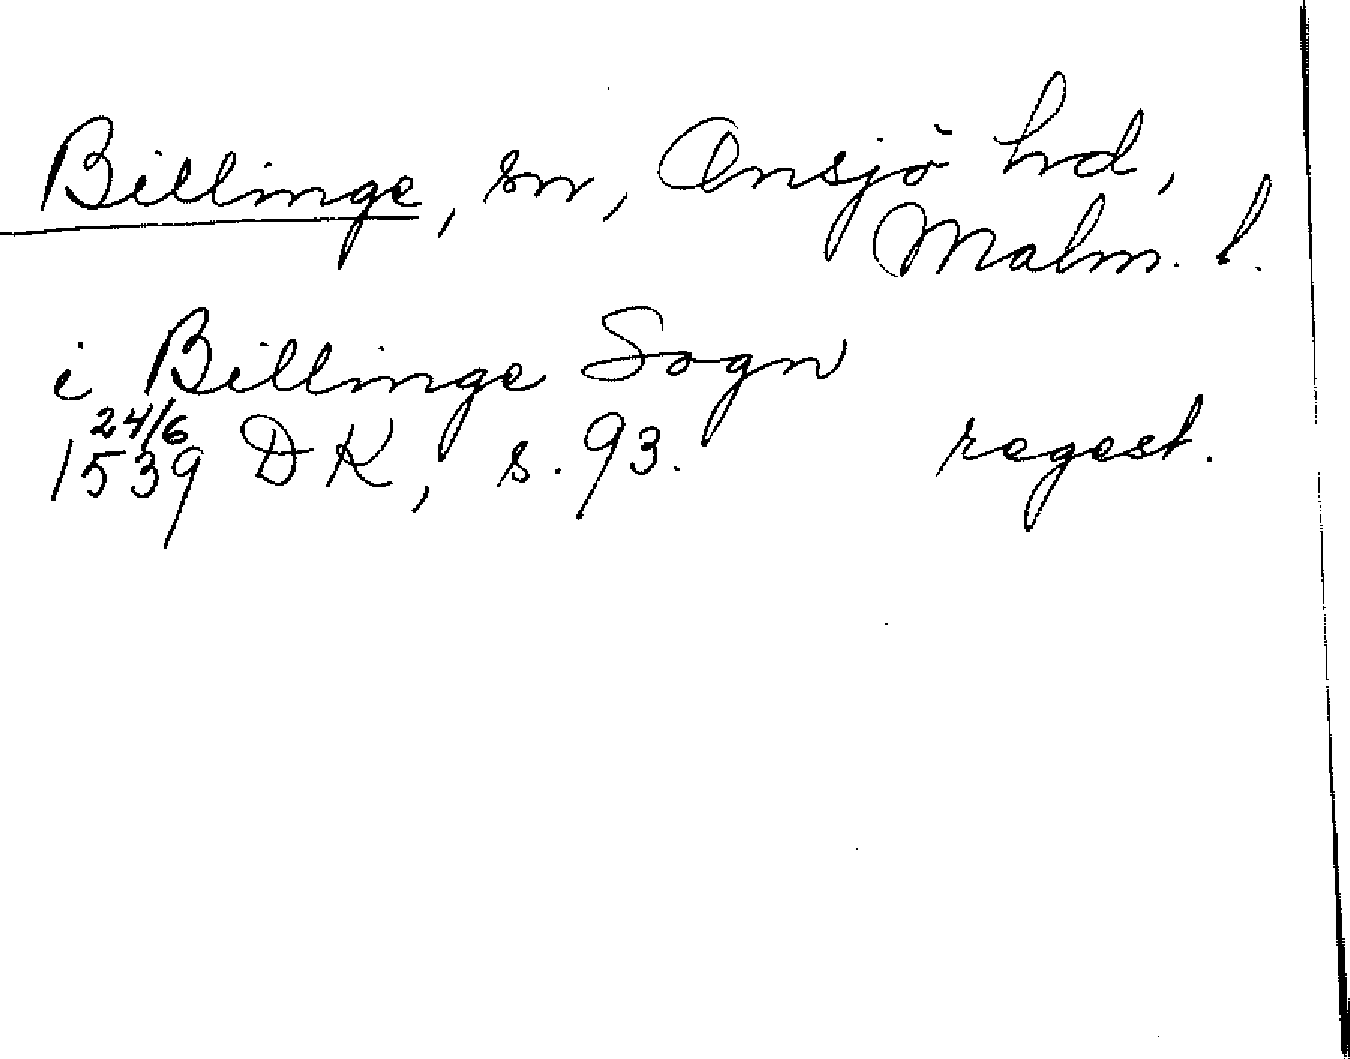 Billinge, sn, Onsjö hd,
Malm. l.
i Billinge Sogn
24/6
1539 DK, s. 93. regest.